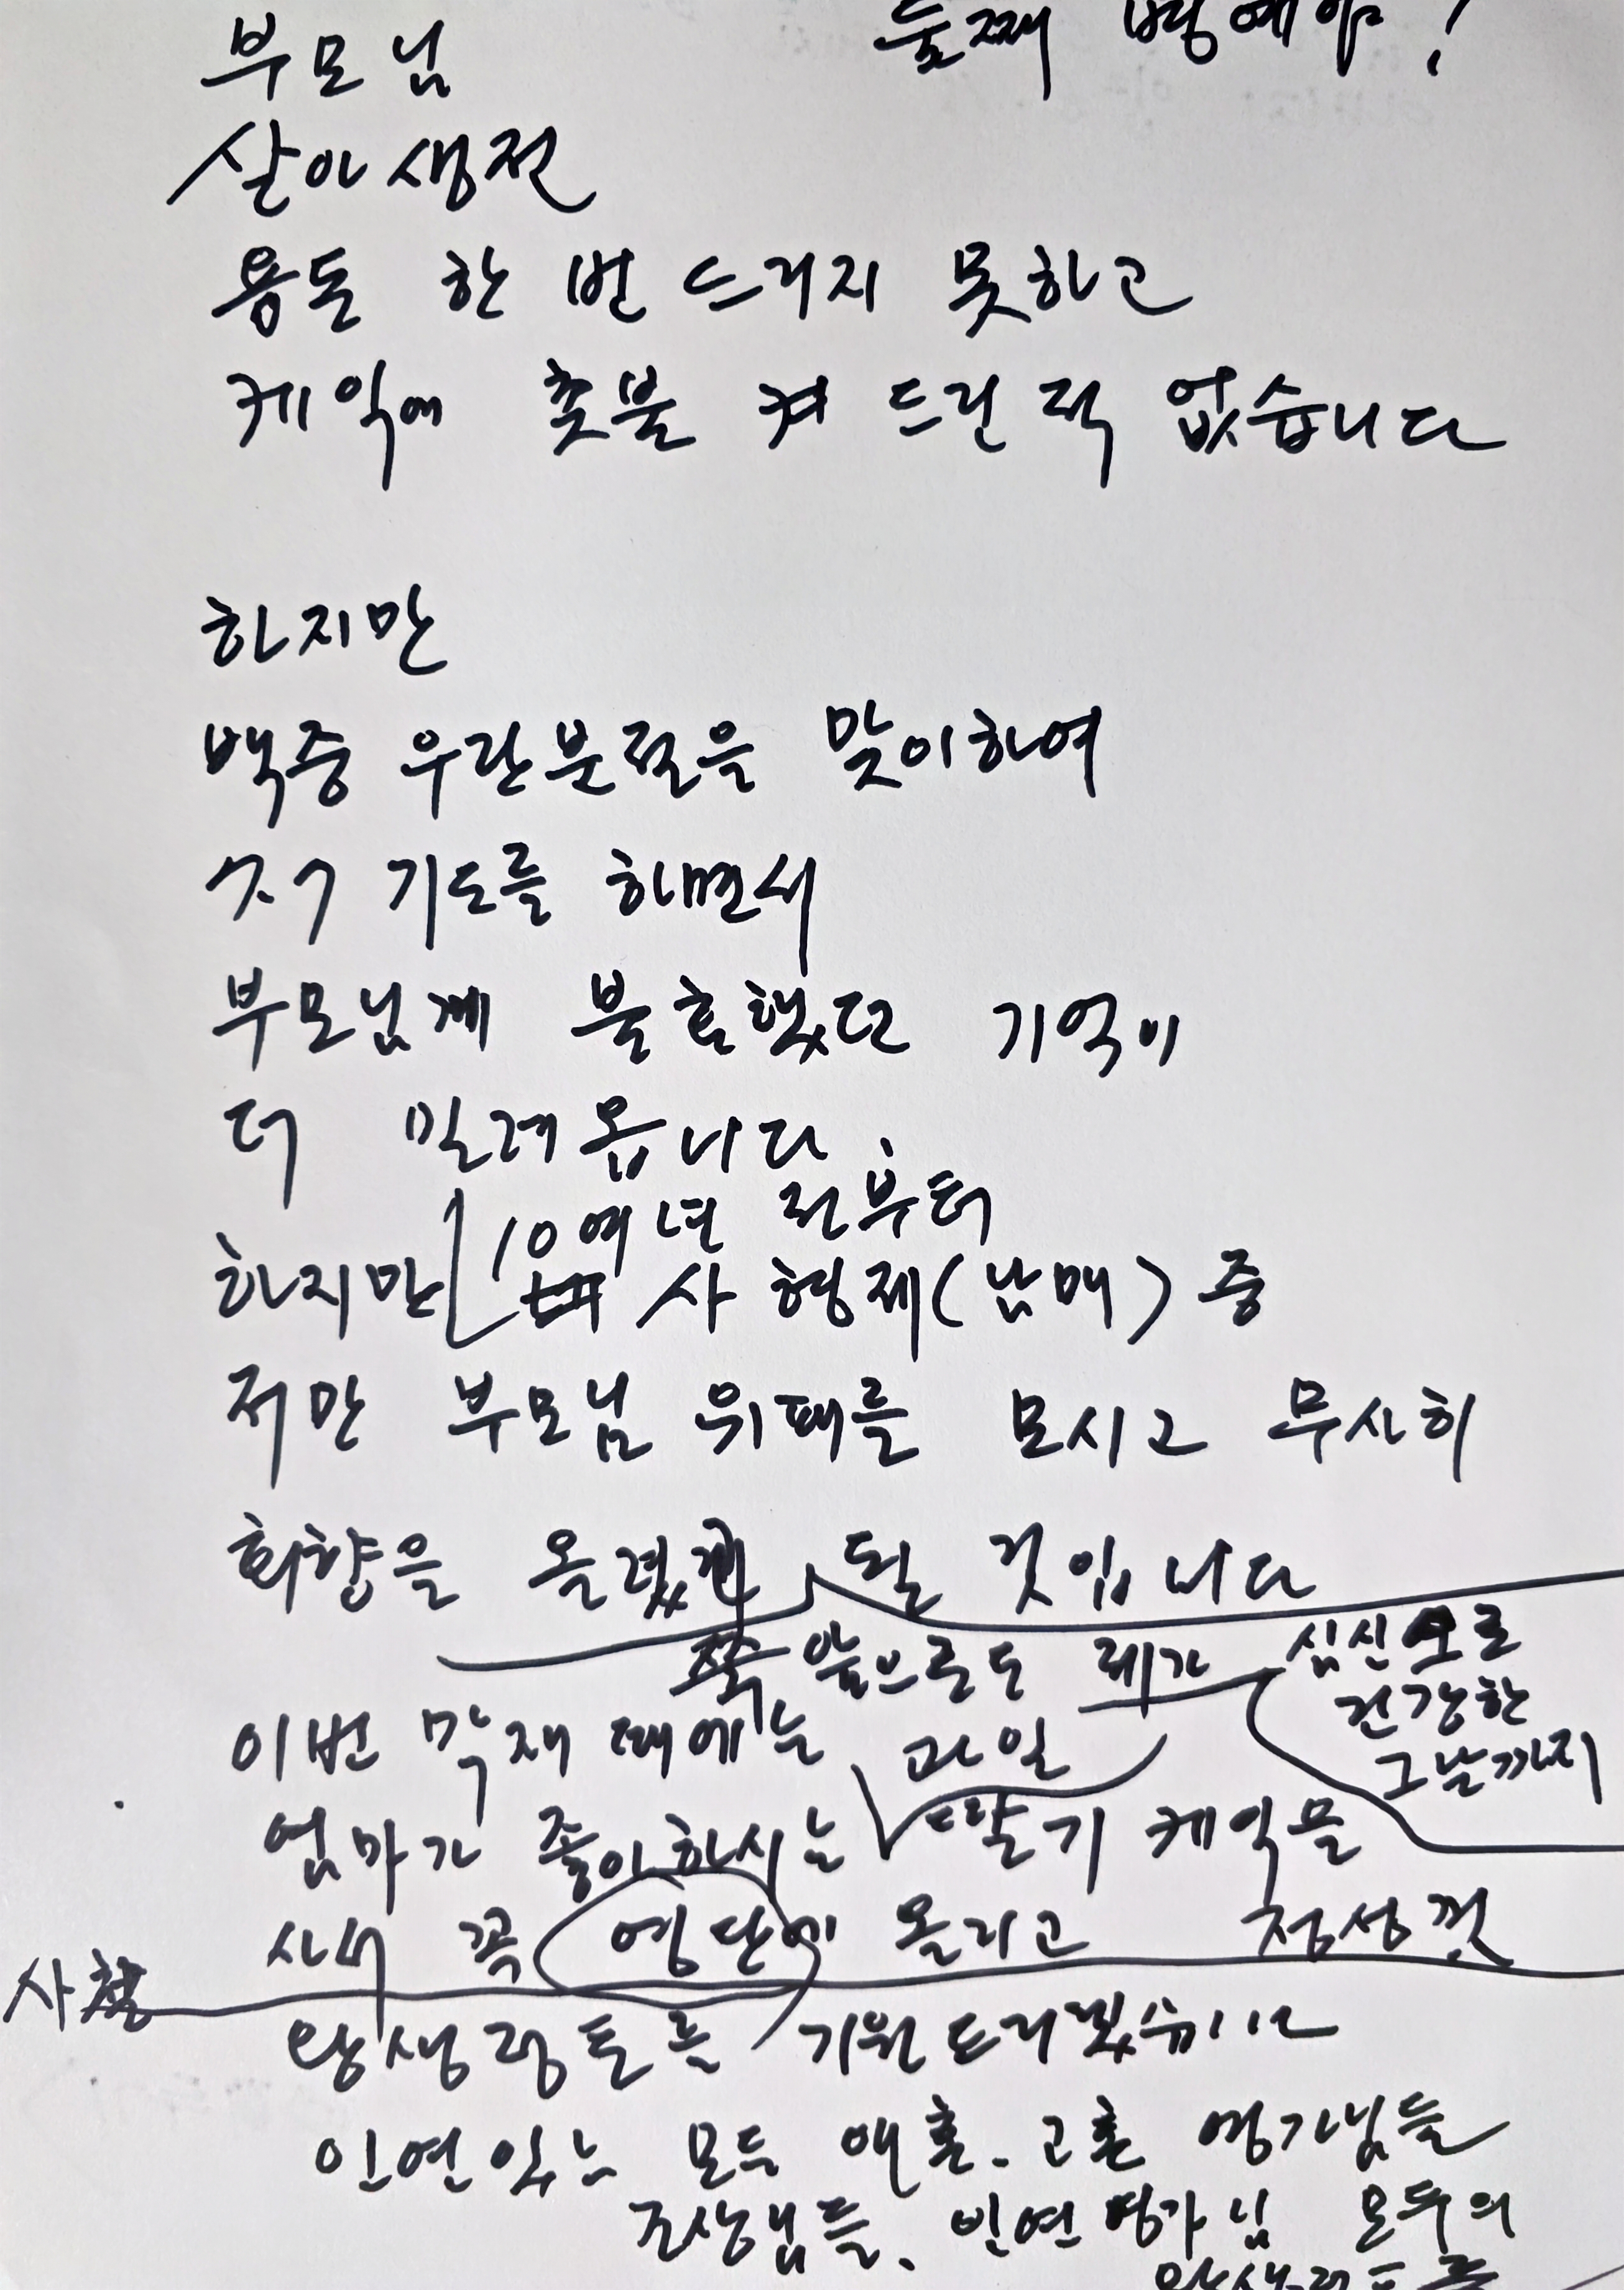 둘째
부모님
살아생전
용돈 한 번 드리지 못하고
케익에 촛불 켜 드린 적 없습니다
하지만
백중 우란분절을 맞이하여
기도를 하면서
부모님께 불효했던 기억이
더 밀려옵니다.
10여년 전부터
하지만 사 형제(남매) 중
저만 부모님 위패를 모시고 무사히
회향을 될 것입니다
쭉 앞으로도 제가 심신으로
건강한
그날까지
이번 막재 때에는 과일
엄마가 좋아하시는 딸기 케익을
사서 꼭 영단에 올리고 정성껏
사철
왕생정토를 기원드리겠습니다
인연있는 모두 애혼. 고혼 영가님들
조상님들, 인연영가님 모두의